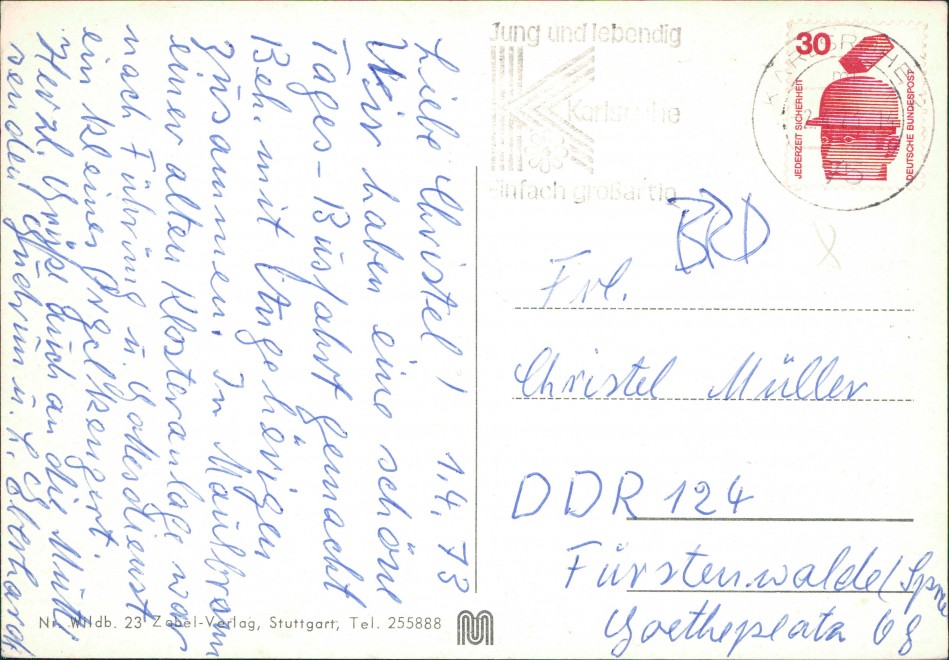 Liebe Christel! 1.4.73
Wir haben eine schöne
Tages-Busfahrt gemacht
Beh. mit Angehörigen
zusammen. In Maulbronn
einer alten Klosteranlage war
nach Führung u. Gottesdienst
ein kleines Orgelkonzert.
Herzl. Grüße auch an die Mutti
senden Gudrun u. L. Eberhardt
Jung und lebendig
Karlsruhe
Einfach großartig
KARLSRUHE
75
30
JEDERZEIT SICHERHEIT
DEUTSCHE BUNDESPOST
BRD
Frl.
Christel Müller
DDR 124
Fürstenwalde/Spree
Goetheplatz 68
Nr. Wildb. 23 Zobel-Verlag, Stuttgart, Tel. 255888